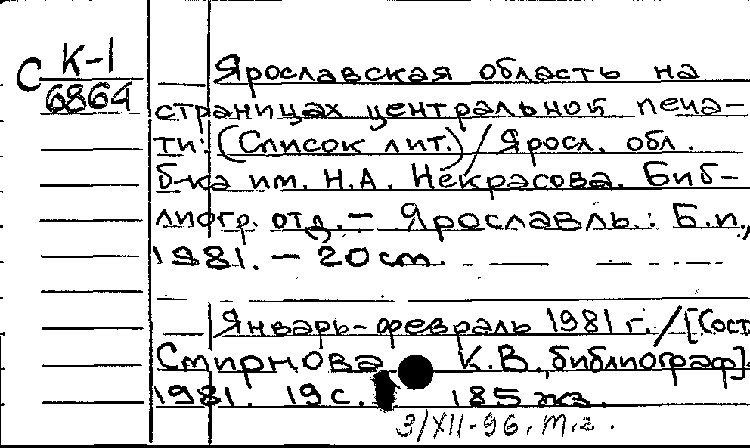 С К-1
6864
Ярославская область на
страницах центральной печа-
ти: (Список лит.) / Яросл. обл.
б-ка им. Н.А. Некрасова. Биб-
лиогр. отд. - Ярославль: Б.и.,
1981. - 20 см.
Январь-февраль 1981 г. / [Сост
Смирнова К.В., библиограф].
1981. 19 с. 185 экз.
3/XII-96. т.г.